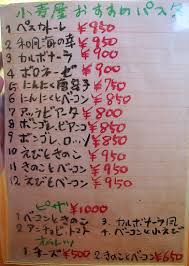 小麦屋おすすめパスタ
1 ペスカトーレ ¥850
2 和風海の幸 ¥950
3 カルボナーラ ¥900
4 ボロネーゼ ¥900
5 にんにく唐辛子 ¥750
6 にんにくとベーコン ¥850
7 アラビアータ ¥800
8 ボンゴレ、ビアンコ ¥850
9 ボンゴレ、ロッソ ¥850
10 えびときのこ ¥950
11 きのことベーコン ¥950
12 えびとベーコン ¥950
ピザ ¥1000
1 ベーコンときのこ 3 カルボナーラ風
2 アンチョビトマト 4 ベーコンと小えび
オムレツ
1 チーズ ¥500 2 きのことベーコン ¥650